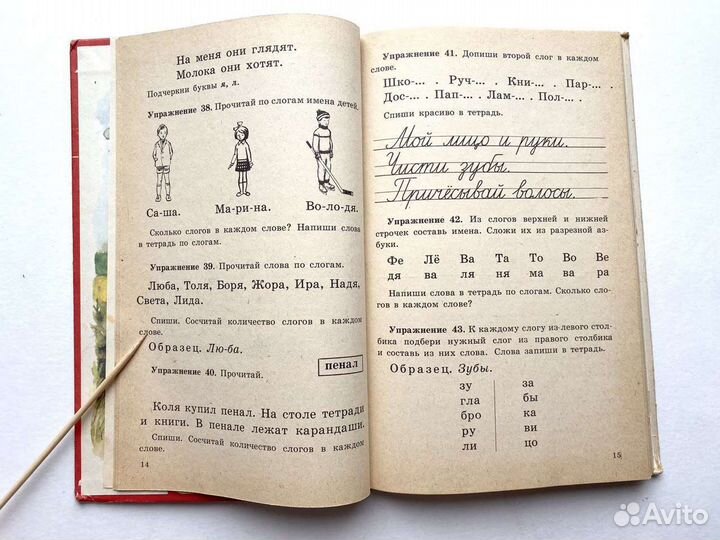 На меня они глядят.
Молока они хотят.
Подчеркни буквы я, л.
Упражнение 38. Прочитай по слогам имена детей.
Са-ша. Ма-ри-на. Во-ло-дя.
Сколько слогов в каждом слове? Напиши слова
в тетрадь по слогам.
Упражнение 39. Прочитай слова по слогам.
Люба, Толя, Боря, Жора, Ира, Надя,
Света, Лида.
Спиши. Сосчитай количество слогов в каждом
слове.
Образец. Лю-ба.
Упражнение 40. Прочитай.
пенал
Коля купил пенал. На столе тетради
и книги. В пенале лежат карандаши.
Спиши. Сосчитай количество слогов в каждом
слове.
14
Упражнение 41. Допиши второй слог в каждом
слове.
Шко-... . Руч-... . Кни-... . Пар-... .
Дос-... . Пап-... . Лам-... . Пол-... .
Спиши красиво в тетрадь.
Мой лицо и руки.
Чисти зубы.
Причёсывай волосы.
Упражнение 42. Из слогов верхней и нижней
строчек составь имена. Сложи их из разрезной аз-
буки.
Фе Лё Ва Та То Во Ве
дя ва ля ня ма ва ра
Напиши слова в тетрадь по слогам. Сколько сло-
гов в каждом слове?
Упражнение 43. К каждому слогу из левого стол-
бика подбери нужный слог из правого столбика
и составь из них слова. Слова запиши в тетрадь.
Образец. Зубы.
зу за
гла бы
бро ка
ру ви
ли цо
15
Avito